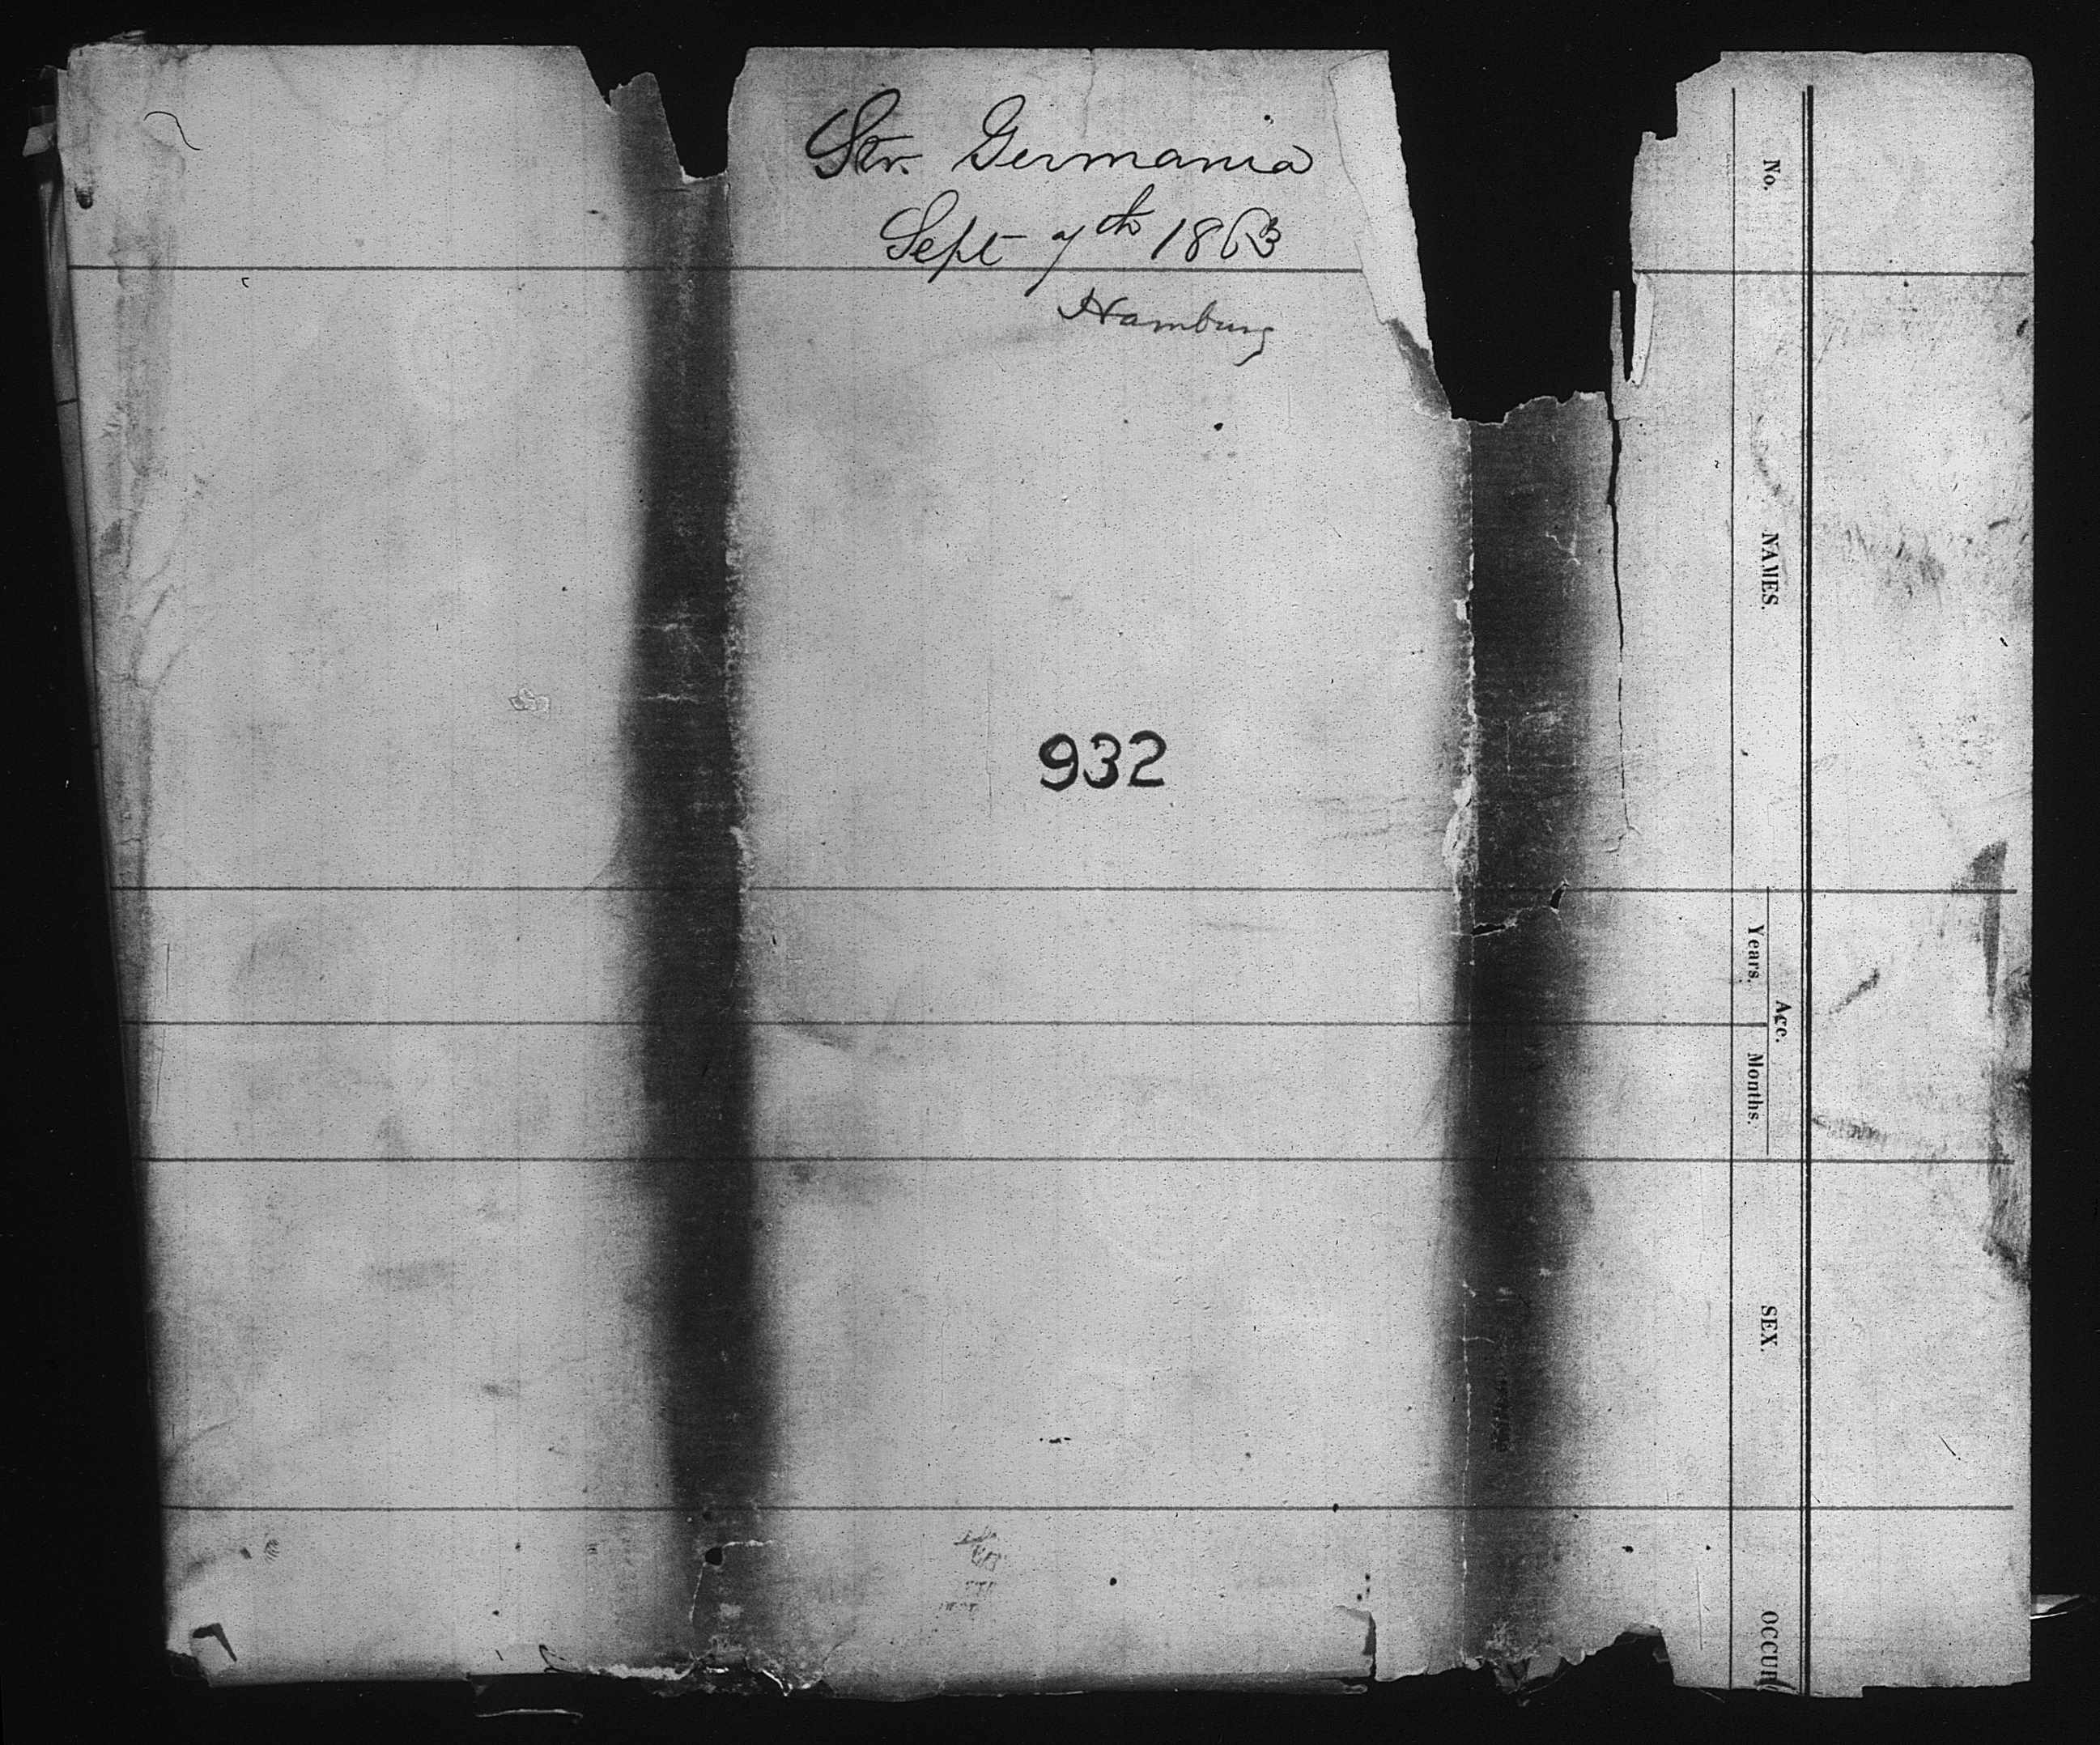 Str. Germania
Sept 7th 1863
Hamburg
932
No.
NAMES.
Age.
Years.
Months.
SEX.
OCCUP